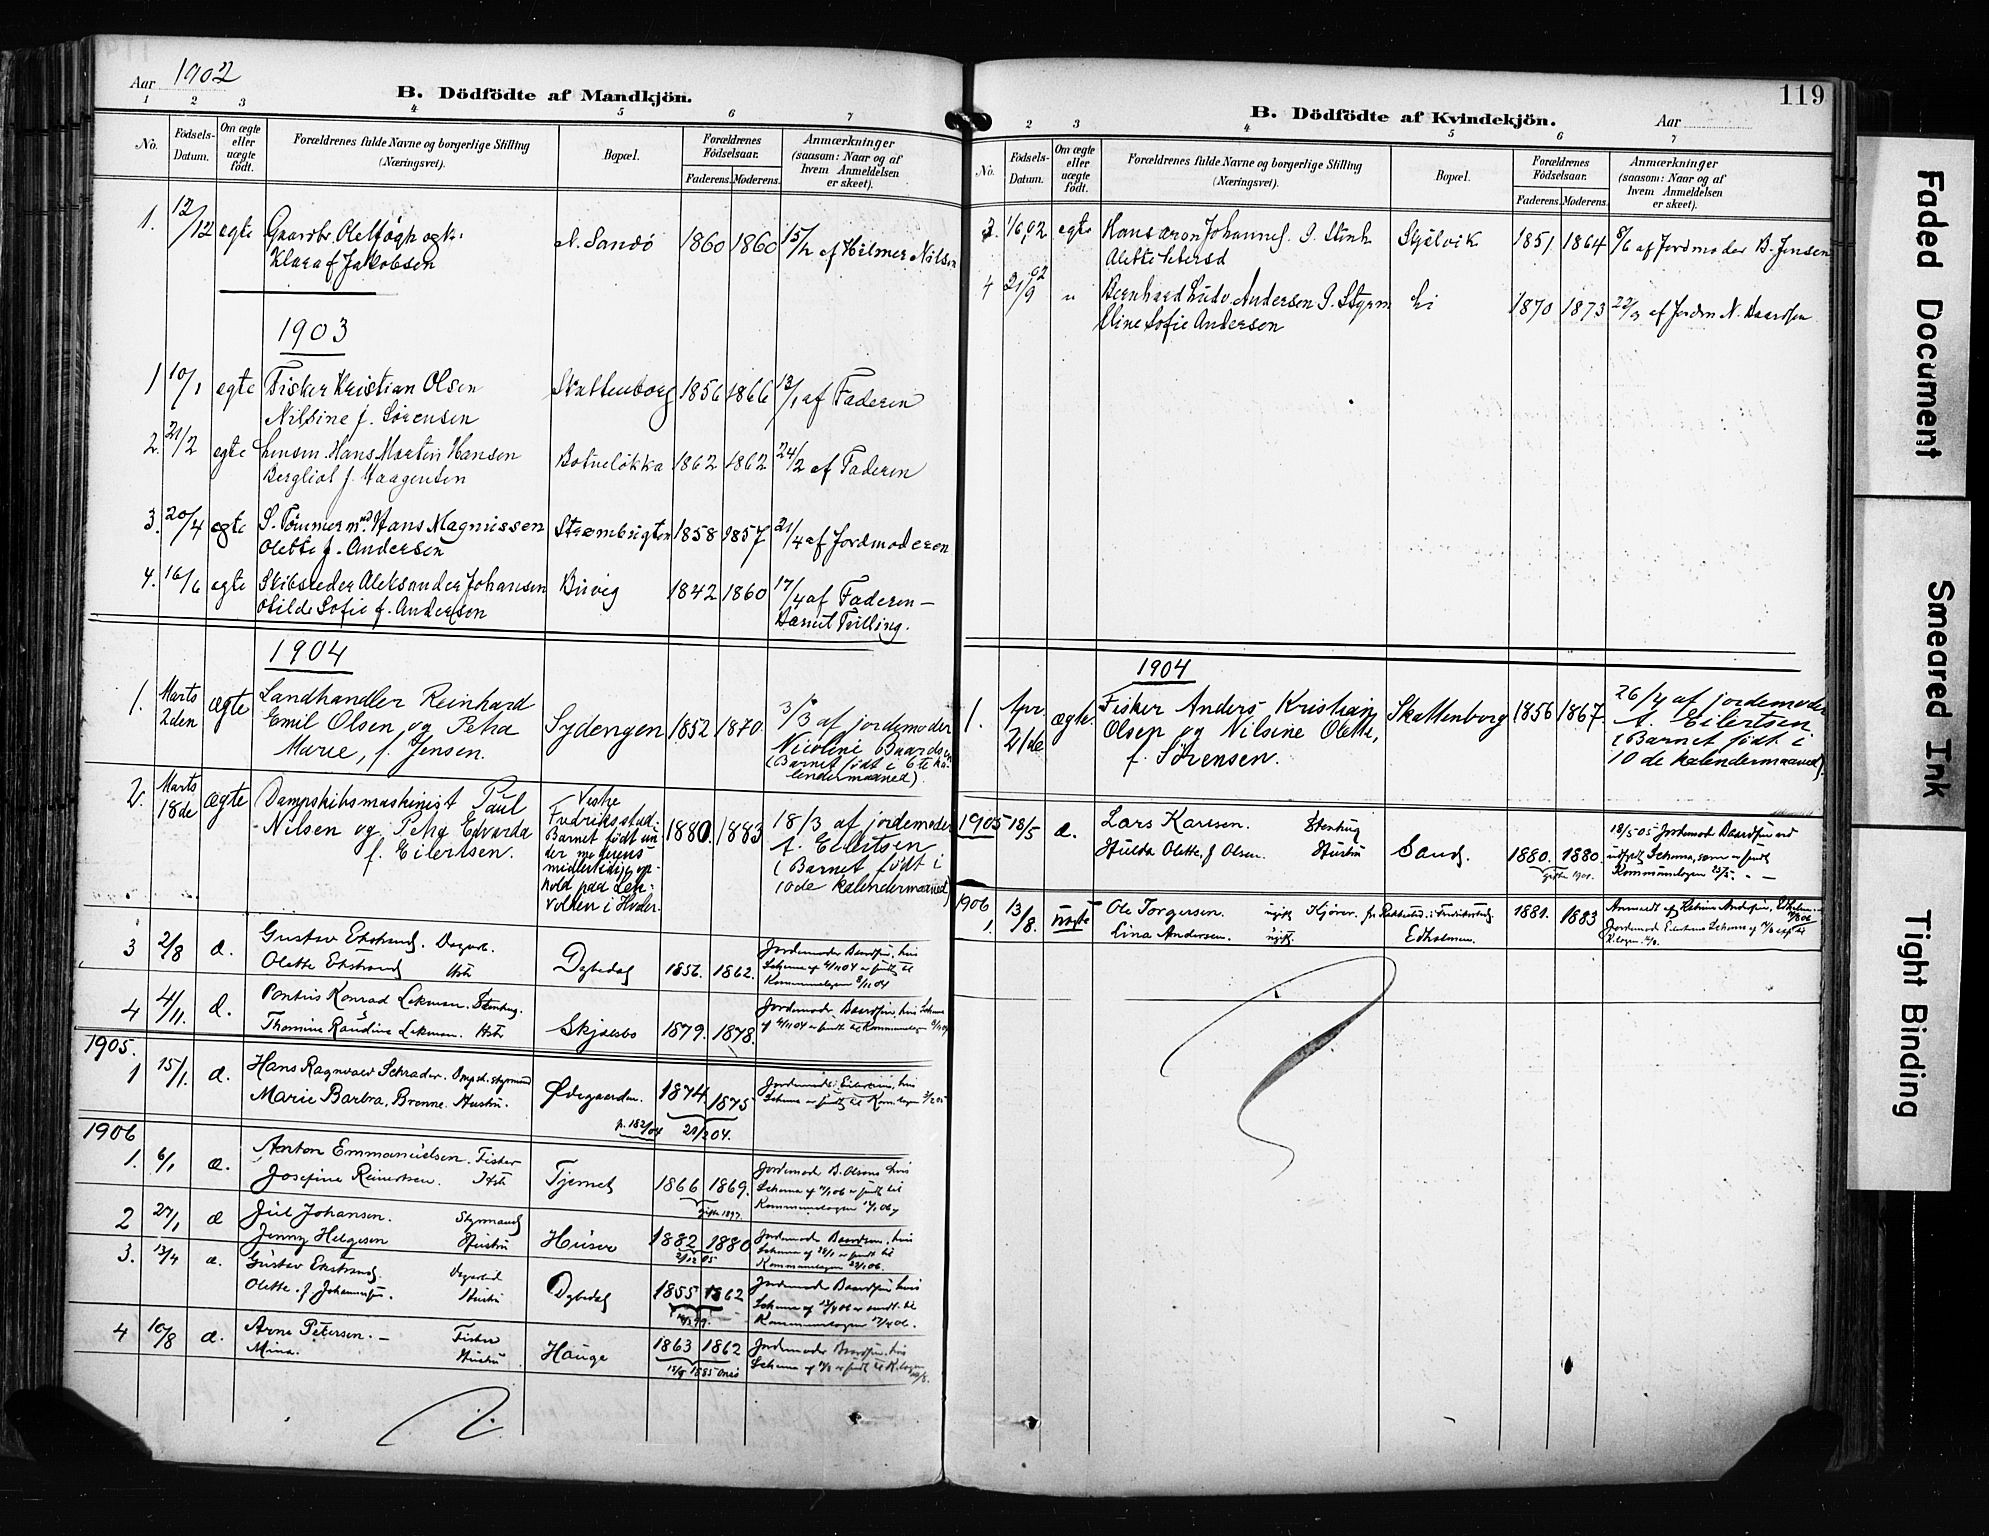 Aar 1902
B. Dödfödte af Mandkjön.
1 2 3 4 5 6 7
No.
Födsels-Datum.
Om ægte eller uægte födt.
Forældrenes fulde Navne og borgerlige Stilling (Næringsvei).
Bopæl.
Forældrenes Födselsaar.
Faderens. Moderens.
Anmærkninger (saasom: Naar og af hvem Anmeldelsen er skeet).
1. 12/12 egte Gaardbr.
Klara f. Jakobsen
N. Sandö 1860 1860 15/12 af Hilmer Nilsen
1903
1 10/1 egte Fisker Kristian Olsen
Nilsine f. Sørensen
Skattenborg 1856 1866 13/1 af Faderen
2. 21/2 egte Hans Martin Hansen
Bergliot f. Haagensen
Botneløkka 1862 1862 24/2 af Faderen
3. 20/4 egte S. Tömmermd. Hans Magnussen
Olette f. Andersen
Strømbugten 1858 1857 21/4 af Jordmoderen
4. 16/6 egte Skibsreder Aleksander Johansen
Otilde Sofie f. Andersen
Buvig 1842 1860 17/4 af Faderen –
Barnet Tvilling.
1904
1. Marts 2den ægte Landhandler Reinhard
Emil Olsen og Petra
Marie, f. Jensen.
Sydengen 1852 1870. 3/3 af jordemoder
Nicoline Baardsen
(Barnet født i 6te ka-
lendermaaned).
2. Marts 18de ægte Dampskibsmaskinist Paul
Nilsen og Petra Edvarda
f. Eilertsen.
Vestre
Fredriksstad.
Barnet født un-
der moderens
midlertidige op-
hold paa
i Hvaler.
1880. 1883 18/3 af jordemoder
A. Eilertsen
(Barnet født i
10de kalendermaaned)
3 2/8 æ. Gustav Ekstrand. Dagarb.
Olette Ekstrand Hstr
Dybedal 1856. 1862. Jordemoder Baardsen, hvis
Schema af
Kommunelægen
4 4/11. æ. Pontus Konrad Lekman. Stenhug.
Thomine Raudine Lekman. Hstr
Skjælsbo 1879. 1878. Jordemoder Baardsen, hvis Schema
1905.
1 15/1. æ. Hans Ragnvald Schrader. Dmpsk.styrmand
Marie Barbra, Brønne. Hustru.
Ødegaarden. 1874. 1875 Jordemoder Eilertsen, hvis
p. 182/04 21/2 04.
1906
1. 6/1 æ. Anton Emmanuelsen. Fisker
Josefine Reinertsen. Hstr
Tjernet 1866 1869. Jordemoder B. Olsens hvis
Gifte 1897.
2 27/1 æ Jul Johansen. Styrmand
Jenny Helgesen Hustru
Huser 1882 1880 Jordemoder Baardsen, hvis
3. 13/4 æ. Gustav Ekstrand. Dagarbeid
Olette. f Johannesen. Hustru
Dybedal 1855 1862 Jordemoder Baardsen hvis
4 10/8 æ. Arne Petersen. – Fisker
Mina. Hustru
Hauge 1863 1862 Jordemoder Baardsen, hvis
119
B. Dödfödte af Kvindekjön.
Aar
2 3 4 5 6 7
No.
Födsels-Datum.
Om ægte eller uægte födt.
Forældrenes fulde Navne og borgerlige Stilling (Næringsvei).
Bopæl.
Forældrenes Födselsaar.
Faderens. Moderens.
Anmærkninger (saasom: Naar og af hvem Anmeldelsen er skeet).
3 1/6 02 egte Hans Johannes. S. Stenh
Alette Petersd
Skjelvik 1851 1864 8/6 af Jordmoder B. Jensen
4 21/9 02 " Bernhard Ludv. Andersen S. Styrm
Eline Sofie Andersen
1870 1873 22/9 af Jordm N. Baardsen
1904
1. Apr. 21de ægte Fisker Anders Kristian
Olsen og Nilsine Olette,
f. Sørensen.
Skattenborg 1856 1867. 26/4 af jordemoder
A. Eilertsen
(Barnet født i
10de kalendermaaned).
1905 18/5 æ. Lars Karlsen. Stenhug
Hulda Olette, f Olsen. Hustru
Sand. 1880. 1880. 18/5-05 Jordemod Baardsen ved
udfyldt Schema, som er sendt
Kommunelægen
Gifte 1901.
1906
1. 13/8. uægte Ole Torgersen. ugift Kjører. fr
Lina Andersen. ugift. Edholmen.
1881. 1883 Anmeldt af
Faded Document
Smeared Ink
Tight Binding